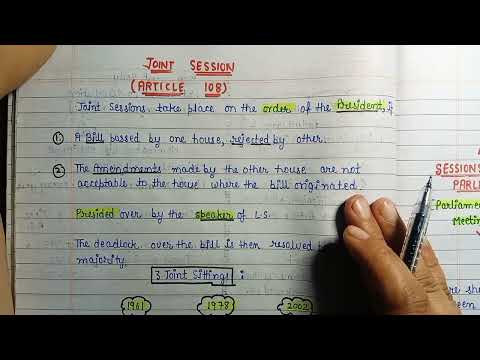 JOINT SESSION
(ARTICLE 108)
Joint Sessions take place on the order of the President, if
① A Bill passed by one house, rejected by other.
② The Amendments made by the other house are not
acceptable to the house where the bill originated.
Presided over by the speaker of L.S.
The deadlock over the bill is then resolved
majority.
3 Joint Sittings :
1961 1978 2002
SESSIONS
PARL
Parliamen
Meetin